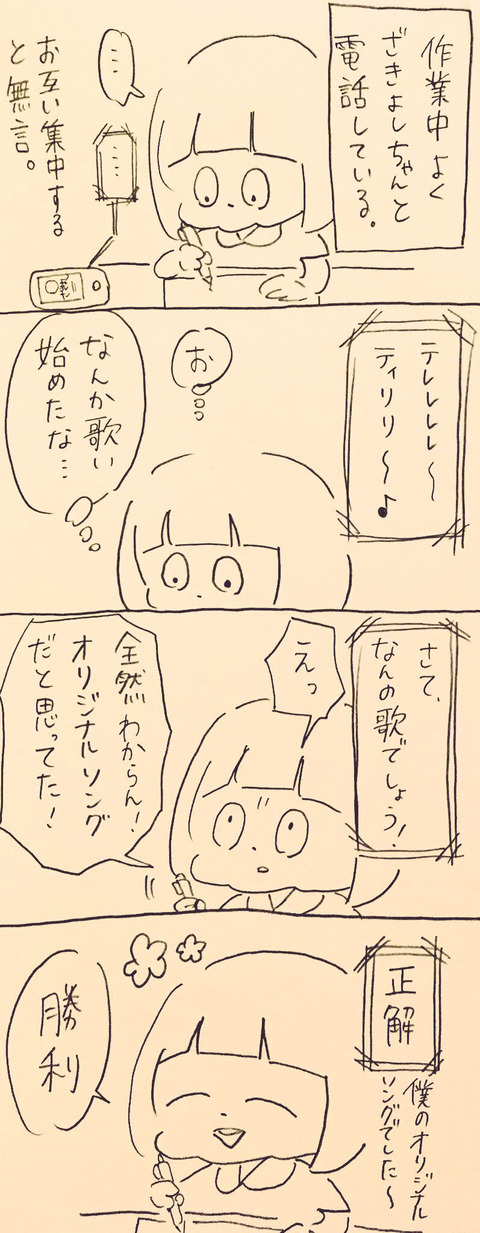 作業中よく
ざきよしちゃんと
電話している。
……
……
お互い集中する
と無言。
テレレレレ〜
ティリリ〜♪
お
なんか歌い
始めたな…
さて、
なんの歌でしょう!
えっ
全然わからん!
オリジナルソング
だと思ってた!
正解
僕のオリジナル
ソングでした〜
勝利